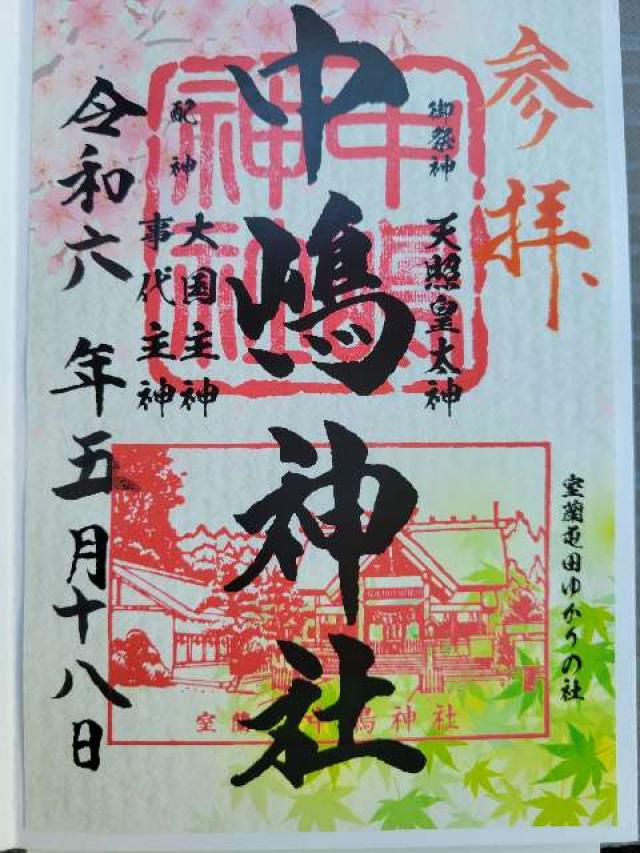 参拝
室蘭屯田ゆかりの社
御祭神 天照皇太神
中嶋神社
中嶋神社
配神 大国主神
事代主神
令和六年五月十八日
室蘭 中嶋神社